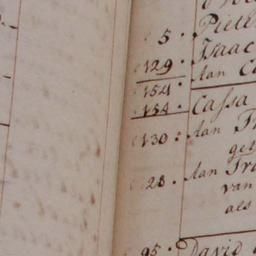 5. Piete
129. Isaac
Aan Ca
154.
154. Cassa
130: Aan
gel
28. Aan Fra
van
als
95. David